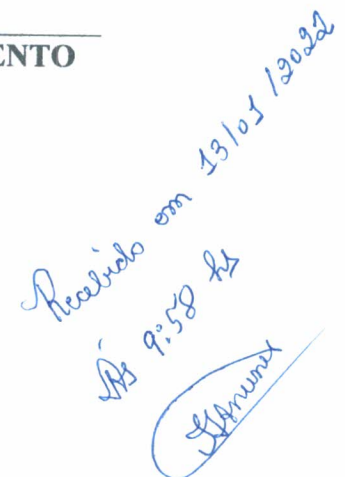 ENTO
Recebido em 13/01/2022
Às 9:58 hs